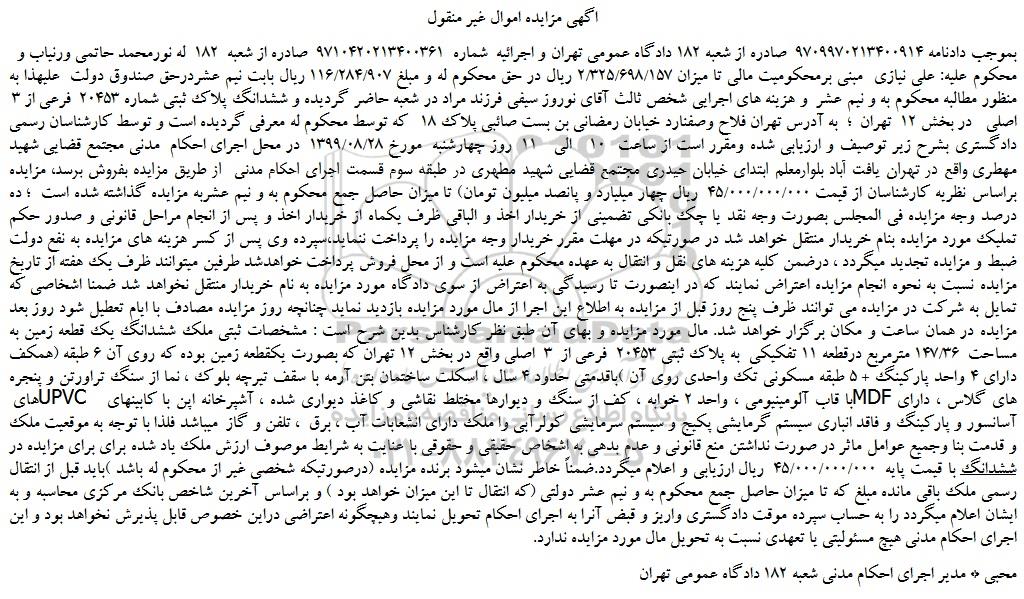 اگهی مزایده اموال غیر منقول
بموجب دادنامه ۹۷۰۹۹۷۰۲۱۳۴۰۰۹۱۴ صادره از شعبه ۱۸۲ دادگاه عمومی تهران و اجرائیه شماره ۹۷۱۰۴۲۰۲۱۳۴۰۰۳۶۱ صادره از شعبه ۱۸۲ له نورمحمد حاتمی ورنیاب و
محکوم علیه: علی نیازی مبنی برمحکومیت مالی تا میزان ۲/۳۲۵/۶۹۸/۱۵۷ ریال در حق محکوم له و مبلغ ۱۱۶/۲۸۴/۹۰۷ ریال بابت نیم عشردرحق صندوق دولت علیهذا به
منظور مطالبه محکوم به و نیم عشر و هزینه های اجرایی شخص ثالث آقای نوروز سیفی فرزند مراد در شعبه حاضر گردیده و ششدانگ پلاک ثبتی شماره ۲۰۴۵۳ فرعی از ۳
اصلی در بخش ۱۲ تهران ؛ به آدرس تهران فلاح وصفنارد خیابان رمضانی بن بست صائبی پلاک ۱۸ که توسط محکوم له معرفی گردیده است و توسط کارشناسان رسمی
دادگستری بشرح زیر توصیف و ارزیابی شده ومقرر است از ساعت ۱۰ الی ۱۱ روز چهارشنبه مورخ ۱۳۹۹/۰۸/۲۸ در محل اجرای احکام مدنی مجتمع قضایی شهید
مطهری واقع در تهران یافت آباد بلوارمعلم ابتدای خیابان حیدری مجتمع قضایی شهید مطهری در طبقه سوم قسمت اجرای احکام مدنی از طریق مزایده بفروش برسد، مزایده
براساس نظریه کارشناسان از قیمت ۴۵/۰۰۰/۰۰۰/۰۰۰ ریال چهار میلیارد و پانصد میلیون تومان) تا میزان حاصل جمع محکوم به و نیم عشربه مزایده گذاشته شده است ؛ ده
درصد وجه مزایده فی المجلس بصورت وجه نقد یا چک بانکی تضمینی از خریدار اخذ و الباقی ظرف یکماه از خریدار اخذ و پس از انجام مراحل قانونی و صدور حکم
تملیک مورد مزایده بنام خریدار منتقل خواهد شد در صورتیکه در مهلت مقرر خریدار وجه مزایده را پرداخت ننماید،سپرده وی پس از کسر هزینه های مزایده به نفع دولت
ضبط و مزایده تجدید میگردد ، درضمن کلیه هزینه های نقل و انتقال به عهده محکوم علیه است و از محل فروش پرداخت خواهدشد طرفین میتوانند ظرف یک هفته از تاریخ
مزایده نسبت به نحوه انجام مزایده اعتراض نمایند که در اینصورت تا رسیدگی به اعتراض از سوی دادگاه مورد مزایده به نام خریدار منتقل نخواهد شد ضمنا اشخاصی که
تمایل به شرکت در مزایده می توانند ظرف پنج روز قبل از مزایده به اطلاع این اجرا از مال مورد مزایده بازدید نماید چنانچه روز مزایده مصادف با ایام تعطیل شود روز بعد
مزایده در همان ساعت و مکان برگزار خواهد شد. مال مورد مزایده و بهای آن طبق نظر کارشناس بدین شرح است : مشخصات ثبتی ملک ششدانگ یک قطعه زمین به
مساحت ۱۴۷/۳۶ مترمربع درقطعه ۱۱ تفکیکی به پلاک ثبتی ۲۰۴۵۳ فرعی از ۳ اصلی واقع در بخش ۱۲ تهران که بصورت یکقطعه زمین بوده که روی آن ۶ طبقه (همکف
دارای ۴ واحد پارکینگ + ۵ طبقه مسکونی تک واحدی روی آن )باقدمتی حدود ۴ سال ، اسکلت ساختمان بتن آرمه با سقف تیرچه بلوک ، نما از سنگ تراورتن و پنجره
های گلاس ، دارای MDFبا قاب آلومینیومی ، واحد ۲ خوابه ، کف از سنگ و دیوارها مختلط نقاشی و کاغذ دیواری شده ، آشپرخانه اپن با کابینهای UPVCهای
آسانسور و پارکینگ و فاقد انباری سیستم گرمایشی پکیج و سیستم سرمایشی کولرآبی وا ملک دارای انشعابات آب ، برق ، تلفن و گاز میباشد فلذا با توجه به موقعیت ملک
و قدمت بنا وجمیع عوامل ماثر در صورت نداشتن منع قانونی و عدم بدهی به اشخاص حقیقی و حقوقی با عنایت به شرایط موصوف ارزش ملک یاد شده برای برای مزایده در
ششدانگ با قیمت پایه ۴۵/۰۰۰/۰۰۰/۰۰۰ ریال ارزیابی و اعلام میگردد.ضمناً خاطر نشان میشود برنده مزایده (درصورتیکه شخصی غیر از محکوم له باشد )باید قبل از انتقال
رسمی ملک باقی مانده مبلغ که تا میزان حاصل جمع محکوم به و نیم عشر دولتی (که انتقال تا این میزان خواهد بود ) و براساس آخرین شاخص بانک مرکزی محاسبه و به
ایشان اعلام میگردد را به حساب سپرده موقت دادگستری واریز و قبض آنرا به اجرای احکام تحویل نمایند وهیچگونه اعتراضی دراین خصوص قابل پذیرش نخواهد بود و این
اجرای احکام مدنی هیچ مسئولیتی یا تعهدی نسبت به تحویل مال مورد مزایده ندارد.
محبی * مدیر اجرای احکام مدنی شعبه ۱۸۲ دادگاه عمومی تهران